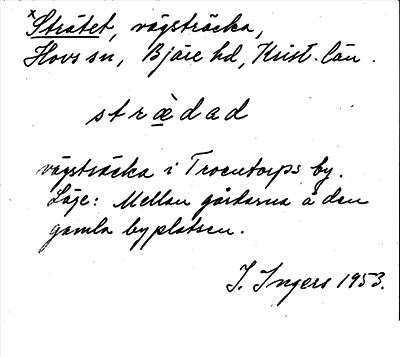 ×Strätet, vägsträcka,
Hovs sn, Bjäre hd, Krist. län.
strǣ̀dad
vägsträcka i Troentorps by.
Läge: Mellan gårdarna å den
gamla byplatsen.
I. Ingers 1953.